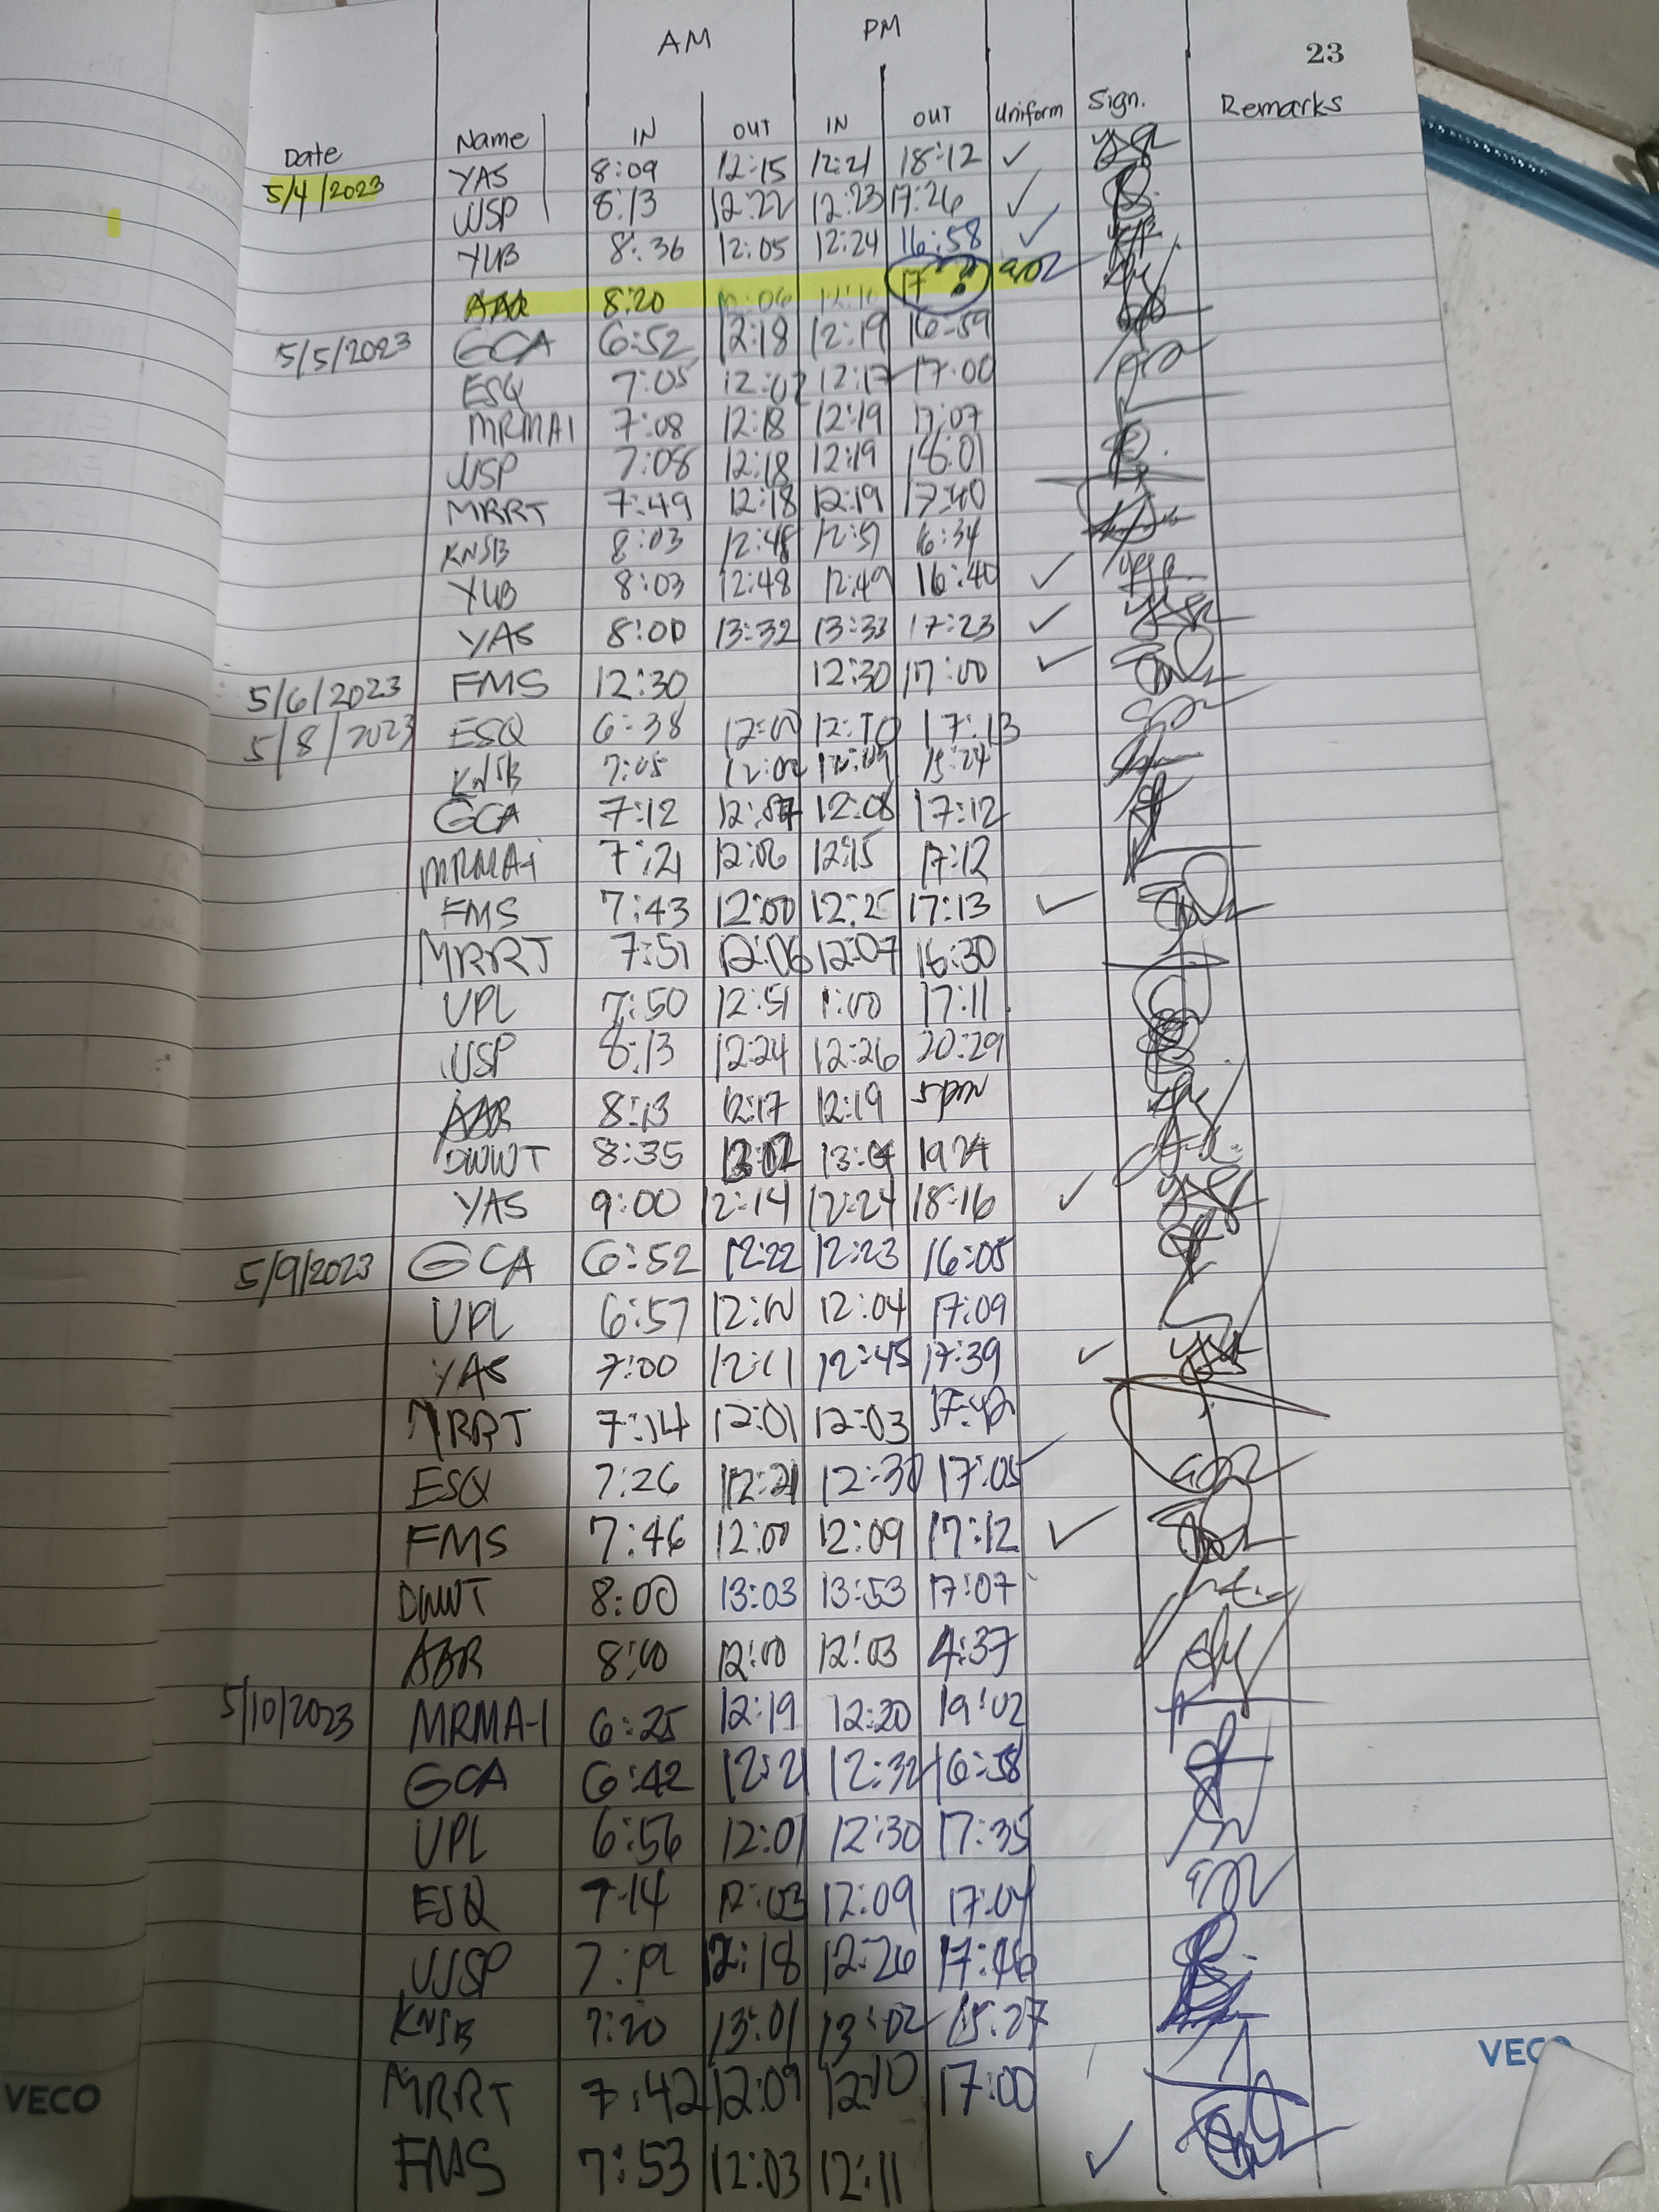 23
AM PM
Date Name IN OUT IN OUT Uniform Sign. Remarks
5/4/2023 YAS 8:09 12:15 12:21 18:12 ✓
WSP 8:13 12:22 12:23 17:26 ✓
YUB 8:36 12:05 12:24 16:58 ✓
AAR 8:20 17
5/5/2023 GCA 6:52 12:18 12:19 16:59
ESQ 7:05 12:02 12:17 17:00
MRMA1 7:08 12:18 12:19 17:07
WSP 7:08 12:18 12:19 18:01
MRRT 7:49 12:18 12:19
KNSB 8:03 12:48 12:51 16:34
YUB 8:03 12:48 12:49 16:40 ✓
YAS 8:00 13:32 13:33 17:23 ✓
5/6/2023 FMS 12:30 12:30 17:00 ✓
5/8/2023 ESQ 6:38 12:00 12:10 17:13
KNSB 7:05 15:24
GCA 7:12 12:07 12:08 17:12
MRMA-1 7:21 12:06 12:15 17:12
FMS 7:43 12:00 12:25 17:13 ✓
MRRT 7:51 12:06 12:07 16:30
UPL 7:50 12:51 1:00 17:11
WSP 8:13 12:24 12:26 20:29
AAR 8:13 12:17 12:19 5pm
DWWT 8:35 13:04 1924
YAS 9:00 12:14 12:24 18:16 ✓
5/9/2023 GCA 6:52 12:22 12:23 16:05
UPL 6:57 12:00 12:04 17:09
YAS 7:00 12:11 12:45 17:39 ✓
MRRT 7:14 12:01 12:03 17:42
ESQ 7:26 12:21 12:30 17:05
FMS 7:46 12:00 12:09 17:12 ✓
DWWT 8:00 13:03 13:53 17:07
AAR 8:00 12:00 12:03 4:37
5/10/2023 MRMA-1 6:25 12:19 12:20 19:02
GCA 6:42 12:21 12:32 16:58
UPL 6:56 12:01 12:30 17:35
ESQ 7:14 12:03 12:09 17:04
WSP 7:19 12:18 12:26 17:46
KNSB 7:20 13:01 13:02 15:27
MRRT 7:42 12:09 12:10 17:00
FMS 7:53 12:03 12:11 ✓
VECO
VECO